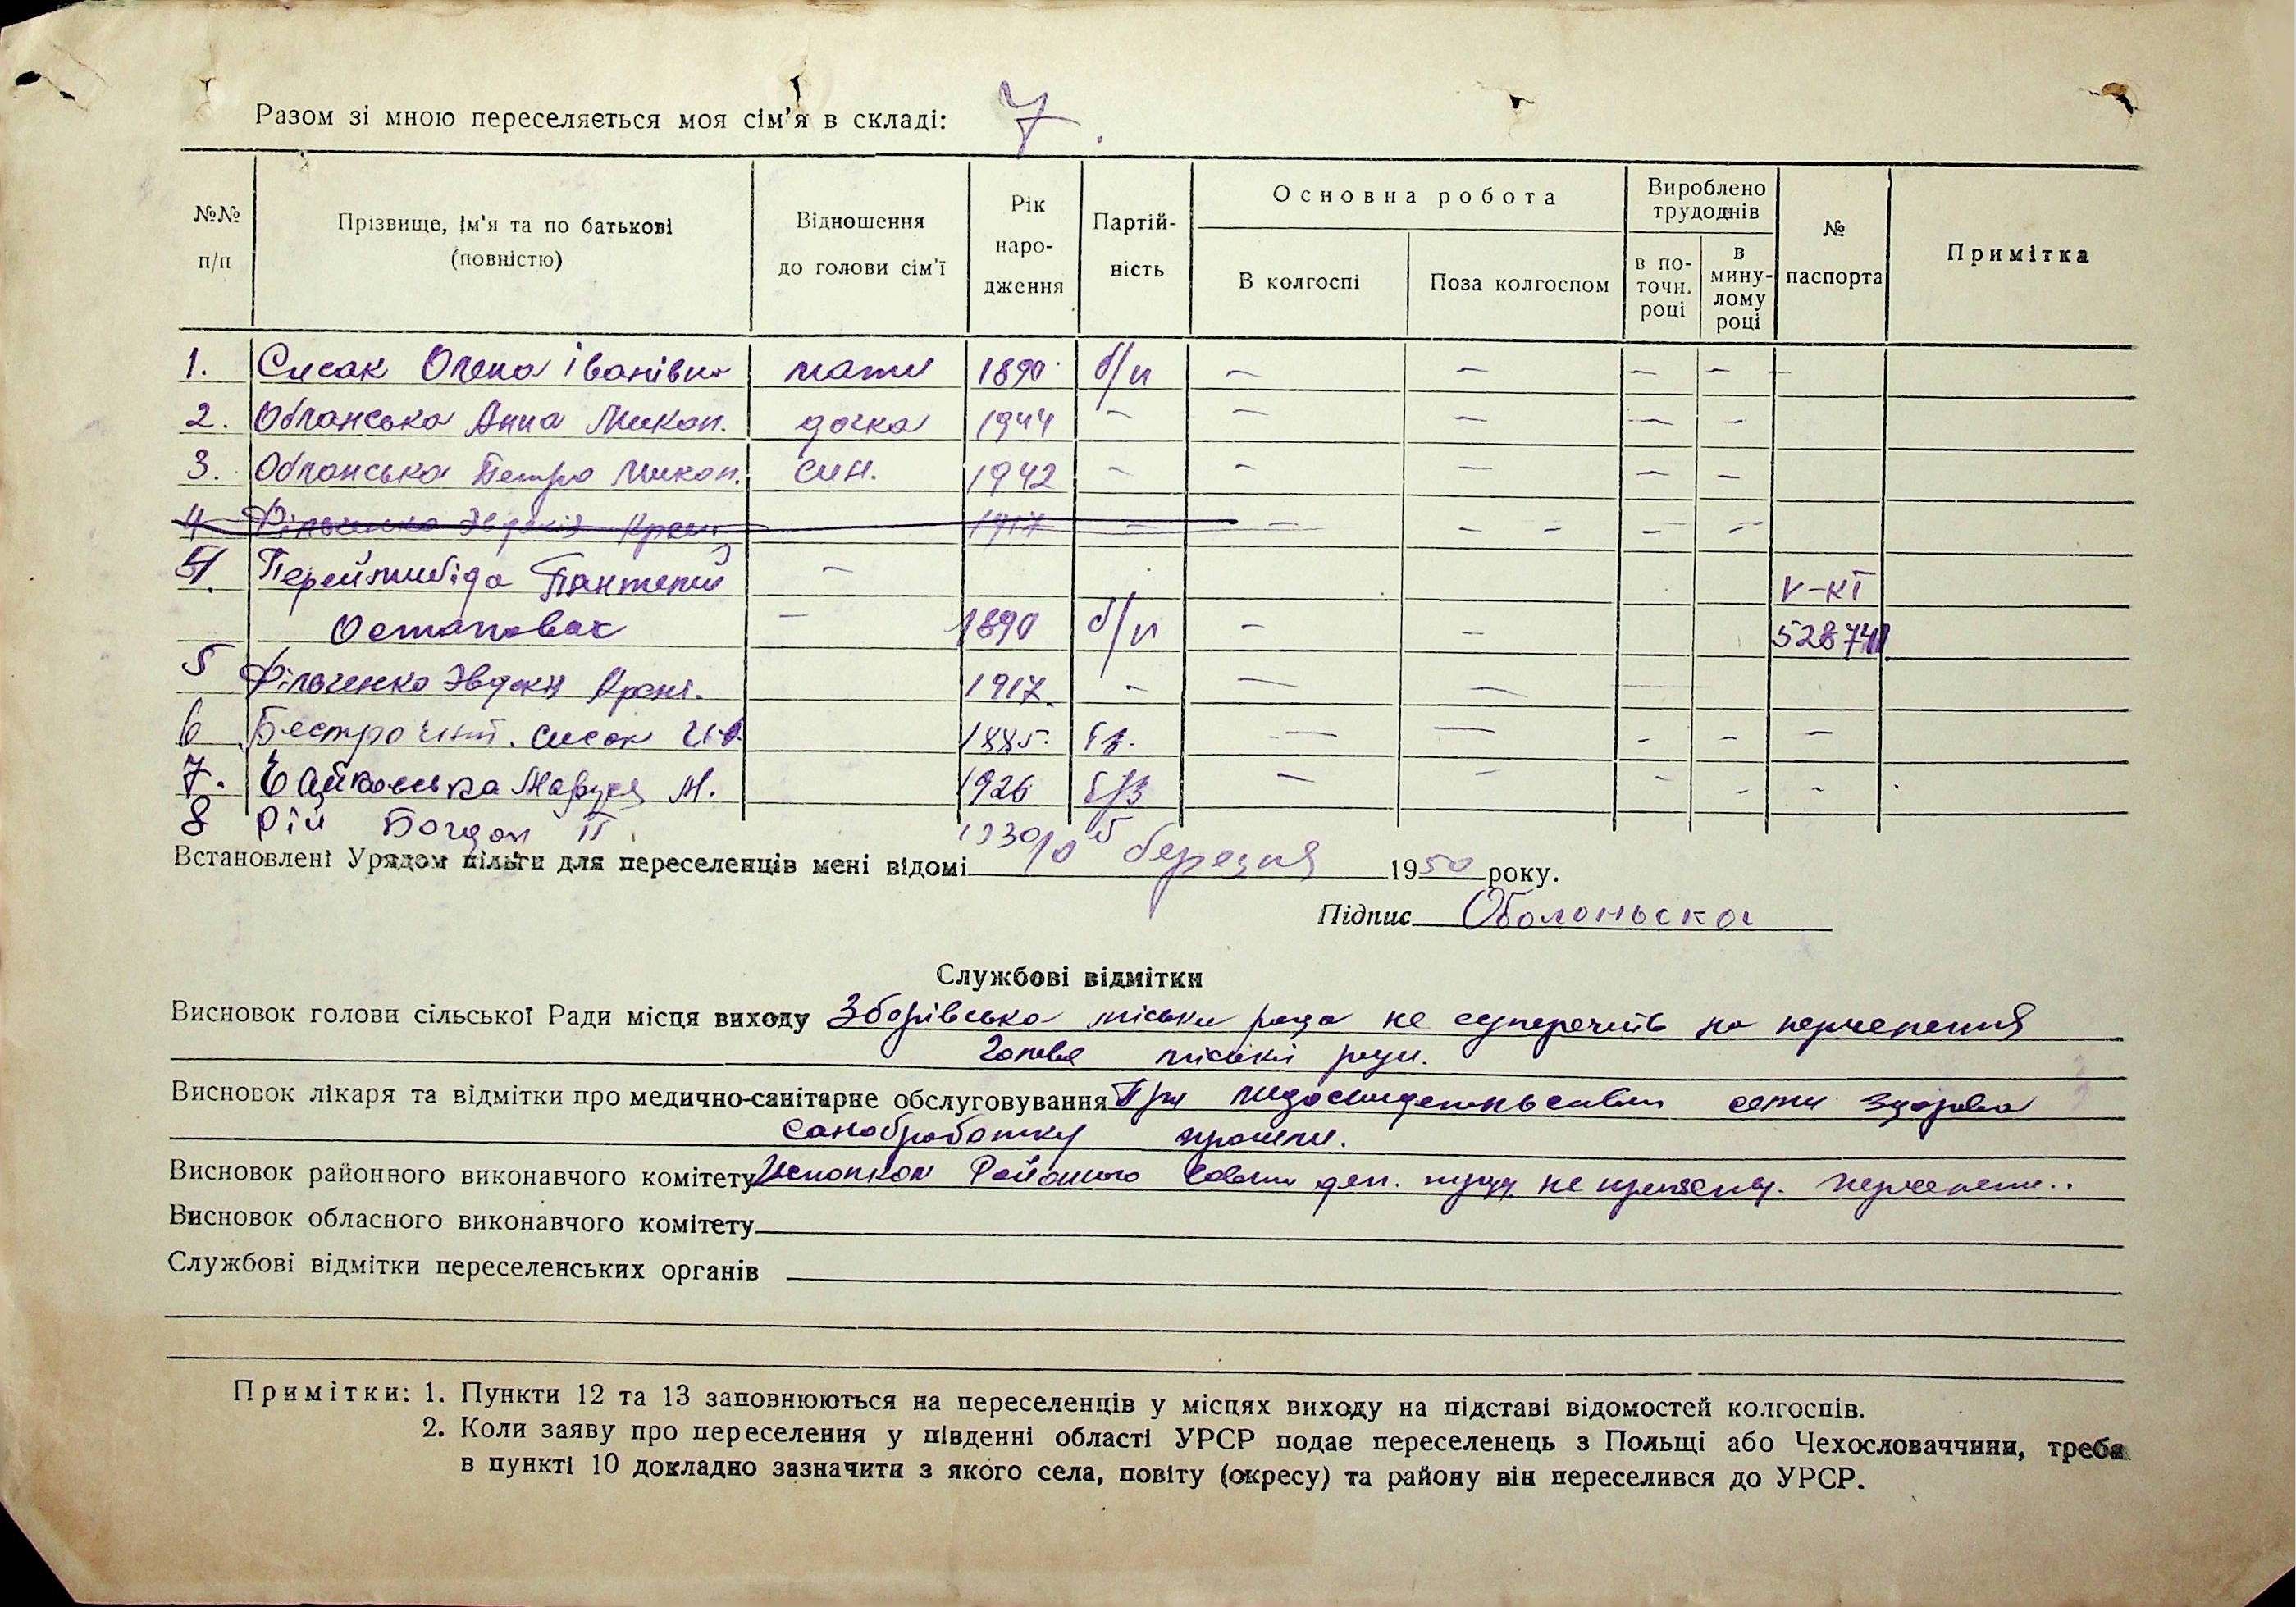 Разом зі мною переселяється моя сім'я в складі: 7.
№№ п/п
Прізвище, ім'я та по батькові (повністю)
Відношення до голови сім'ї
Рік наро- дження
Партій- ність
Основна робота
В колгоспі
Поза колгоспом
Вироблено трудоднів
в по- точн. році
в мину- лому році
№ паспорта
Примітка
1. Сисак Олена Іванівна мати 1890 б/п — — — —
2. Обланська Анна Микол. дочка 1944 — — — — —
3. Обланська Петро Микол. син. 1942 — — — — —
4 Фільченко Эвдокія 1917 — — — — — —
4. Переймибіда Пантелій — V-КТ
Остапович — 1890 б/п — — 528741
5 Фільченко Эвдокія 1917. — — —
6 сисак 1885. — — — — —
7. Маруся М. 1926 — — — — —
8 Рій Богдан П 1930
Встановлені Урядом пільги для переселенців мені відомі 10 березня 1950 року.
Підпис Оболоньска
Службові відмітки
Висновок голови сільської Ради місця виходу Зборівська міська рада не суперечить на переселення
Голова міської ради.
Висновок лікаря та відмітки про медично-санітарне обслуговування При сем здорова
санобработку прошли.
Висновок районного виконавчого комітету Исполком Районного Совета деп. труд. не
Висновок обласного виконавчого комітету
Службові відмітки переселенських органів
Примітки: 1. Пункти 12 та 13 заповнюються на переселенців у місцях виходу на підставі відомостей колгоспів.
2. Коли заяву про переселення у південні області УРСР подає переселенець з Польщі або Чехословаччини, треба
в пункті 10 докладно зазначити з якого села, повіту (окресу) та району він переселився до УРСР.